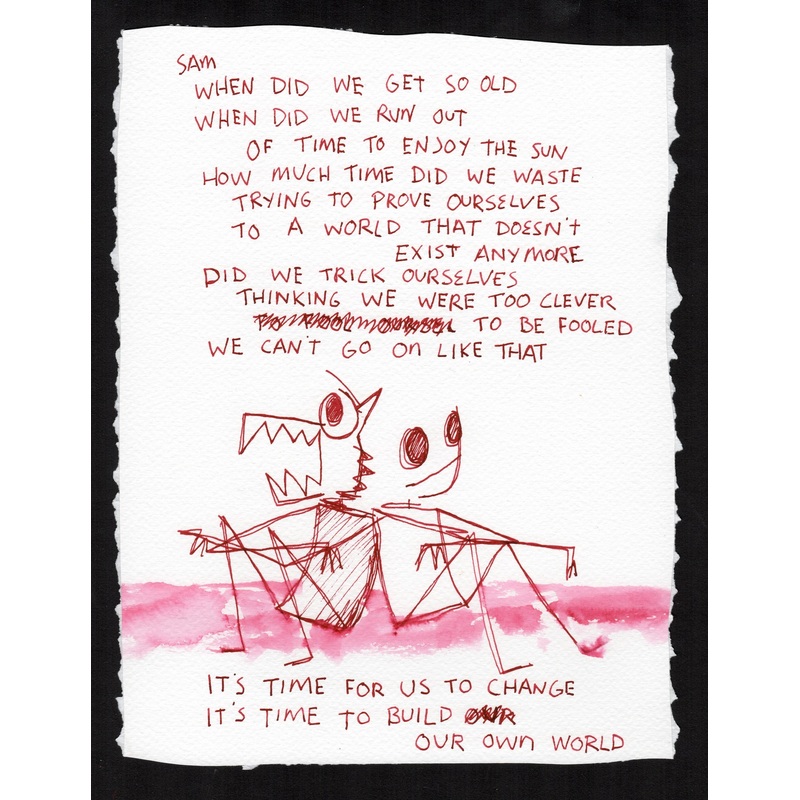 SAM
WHEN DID WE GET SO OLD
WHEN DID WE RUN OUT
OF TIME TO ENJOY THE SUN
HOW MUCH TIME DID WE WASTE
TRYING TO PROVE OURSELVES
TO A WORLD THAT DOESN't
EXIST ANYMORE
DID WE TRICK OURSELVES
THINKING WE WERE TOO CLEVER
TO BE FOOLED
WE CAN'T GO On LIKE THAT
IT'S TIME FOR US TO CHANGE
IT'S TIME TO BUILD
OUR OWN WORLD